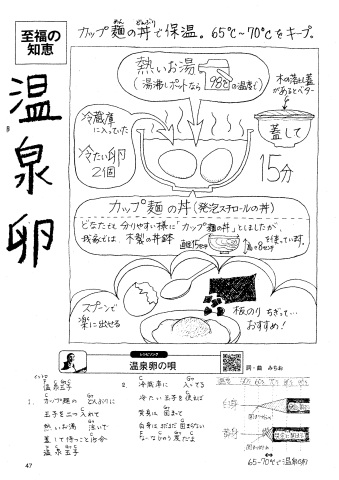 至福の
知恵
温泉卵
カップ麺の丼で保温。65℃~70℃をキープ。
めん
どんぶり
熱いお湯
(湯沸しポットなら98℃の温度で)
木の落し蓋
があるとベター
冷蔵庫
に入っていた
冷たい卵
2個
蓋して
15分
カップ麺の丼(発泡スチロールの丼)
どなたにも分りやすい様に「カップ麺の丼」としましたが、
我家では木製の丼鉢
直径15センチ
高さ8センチ
を使っています。
スプーンで
楽に出せる
板のりちぎって…
おすすめ!
レシピソング
温泉卵の唄
詞・曲 みちお
イントロ
温泉玉子
1. カップ麺の どんぶりに
玉子を二つ入れて
熱いお湯 注いで
蓋して待つこと15分
温泉玉子
2. 冷蔵庫に 入ってる
冷たい玉子を使えば
黄身は 固まって
白身はまだまだ固まらない
白身
黄身
65-70℃で温泉卵
47